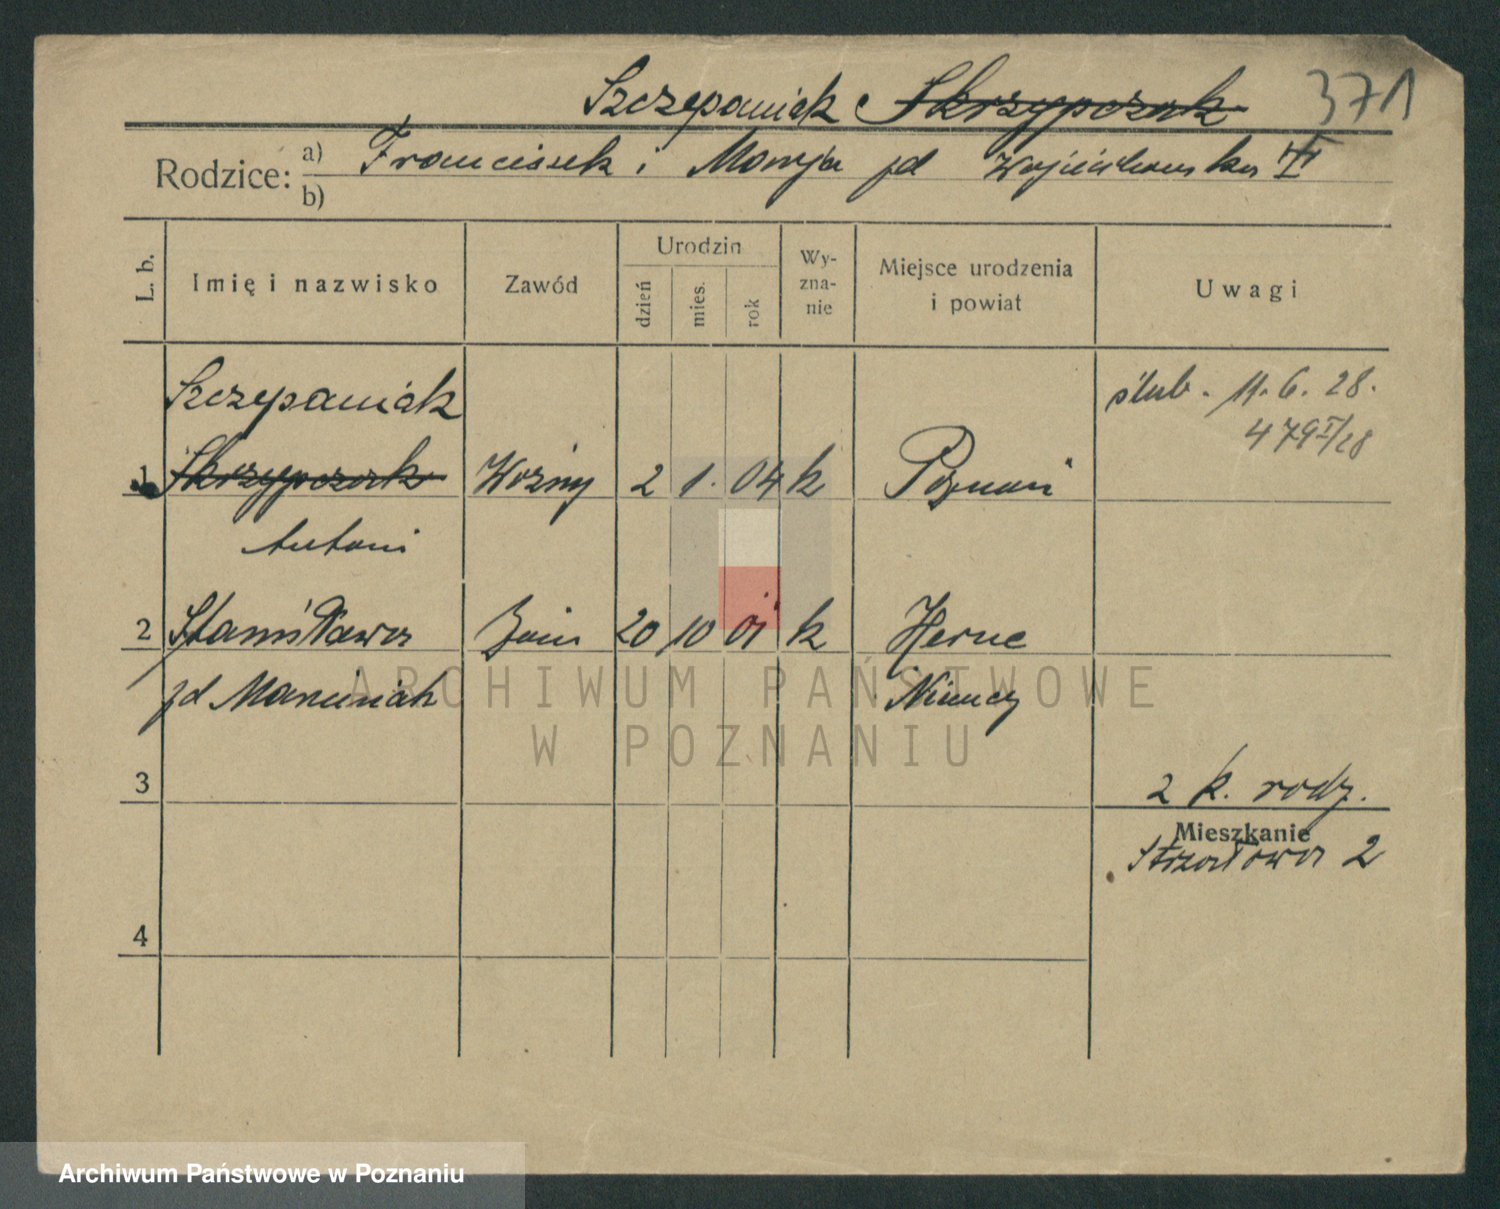 Szczepaniak Skrzypczak 371
Rodzice: a) Franciszek i Maryja zd Wojciechowska
b)
L. b. Imię i nazwisko Zawód Urodzin dzień mies. rok Wyznanie Miejsce urodzenia i powiat Uwagi
Szczepaniak ślub. 11. 6. 28.
479 I/28
1 Skrzypczak Woźny 2 1. 04 k Poznań
Antoni
2 Stanisława 20 10 01 k Herne
zd Marciniak Niemcy
ARCHIWUM PAŃSTWOWE
W POZNANIU
3 2 k. rodz.
Mieszkanie
Strzałowa 2
4
Archiwum Państwowe w Poznaniu